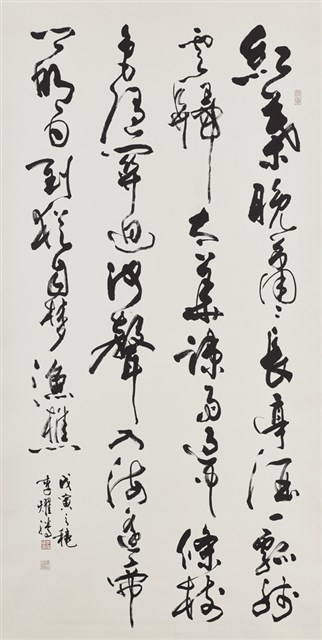 紅葉晚蕭〻長亭酒一瓢殘
雲歸太華疎雨過中條樹
色隨關迥河聲入海遥帝
鄉明日到猶自梦漁樵
戊寅之穐
李耀